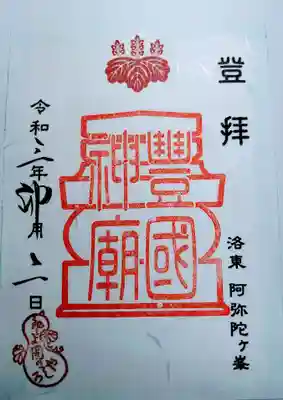 登拝
洛東 阿弥陀ヶ峯
豐國
神廟
令和三年卯月二日